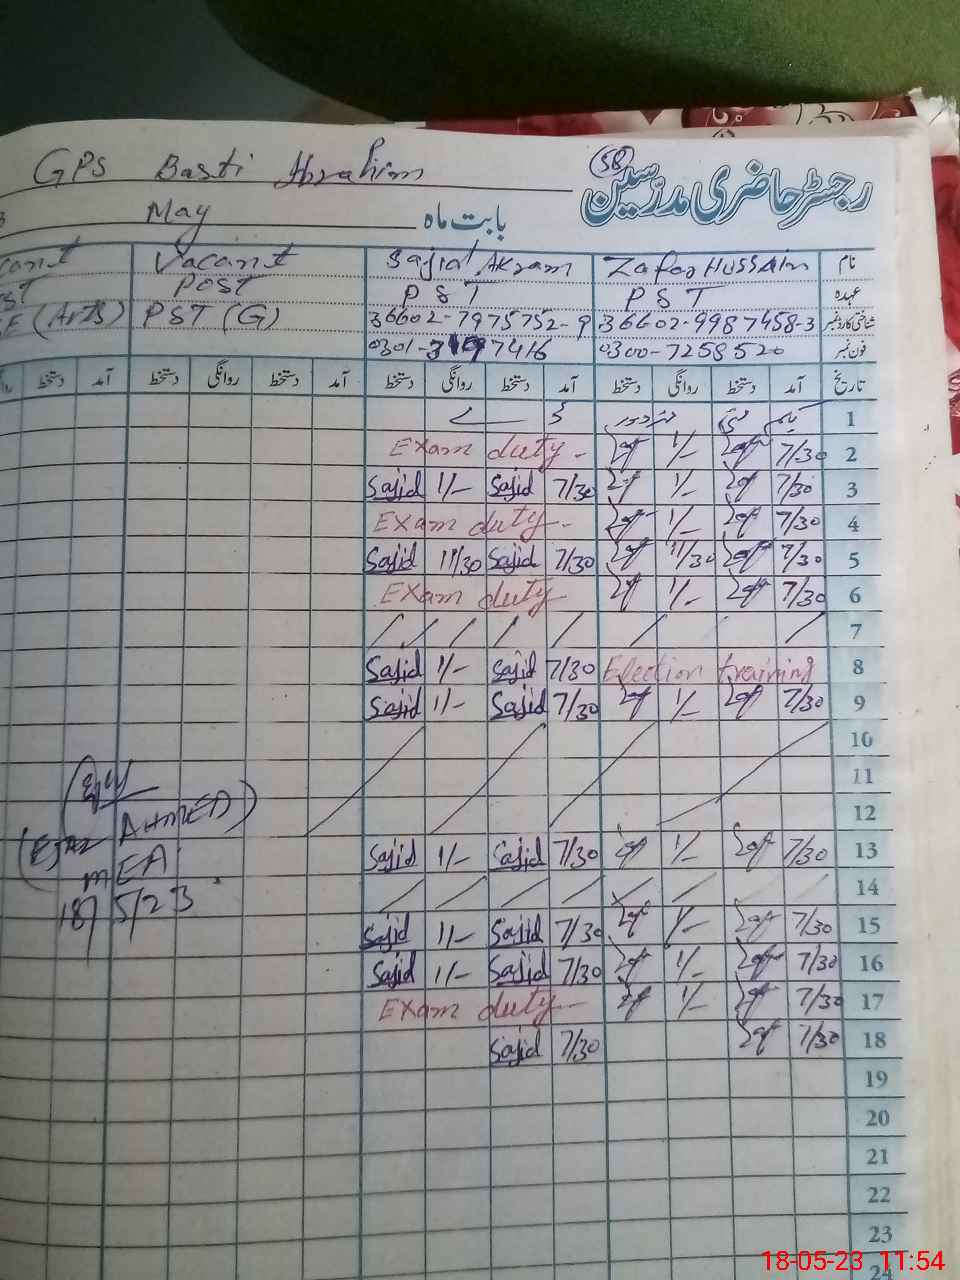 GPS Basti Ibrahim
58
رجسٹر حاضری مدرسین
May
بابت ماہ
Vacant Sajid Akram Zafar Hussain نام
Post PST PST عہدہ
(Arts) PST (G) 36602-7975752-9 36602-9987458-3 شناختی کارڈ نمبر
0301- 7416 0300-7258520 فون نمبر
دستخط آمد دستخط روانگی دستخط آمد دستخط روانگی دستخط آمد دستخط روانگی دستخط آمد تاریخ
1
Exam duty 1/- 7/30 2
Sajid 1/- Sajid 7/30 1/- 7/30 3
Exam duty 1/- 7/30 4
Sajid 11/30 Sajid 7/30 11/30 7/30 5
Exam duty 1/- 7/30 6
7
Sajid 1/- Sajid 7/30 Election training 8
Sajid 1/- Sajid 7/30 1/- 7/30 9
10
11
12
Sajid 1/- Sajid 7/30 1/- 7/30 13
14
Sajid 1/- Sajid 7/30 1/- 7/30 15
Sajid 1/- Sajid 7/30 1/- 7/30 16
Exam duty 1/- 7/30 17
Sajid 7/30 7/30 18
19
20
21
22
23
24
AHMED)
MEA
18/5/23
18-05-23 11:54